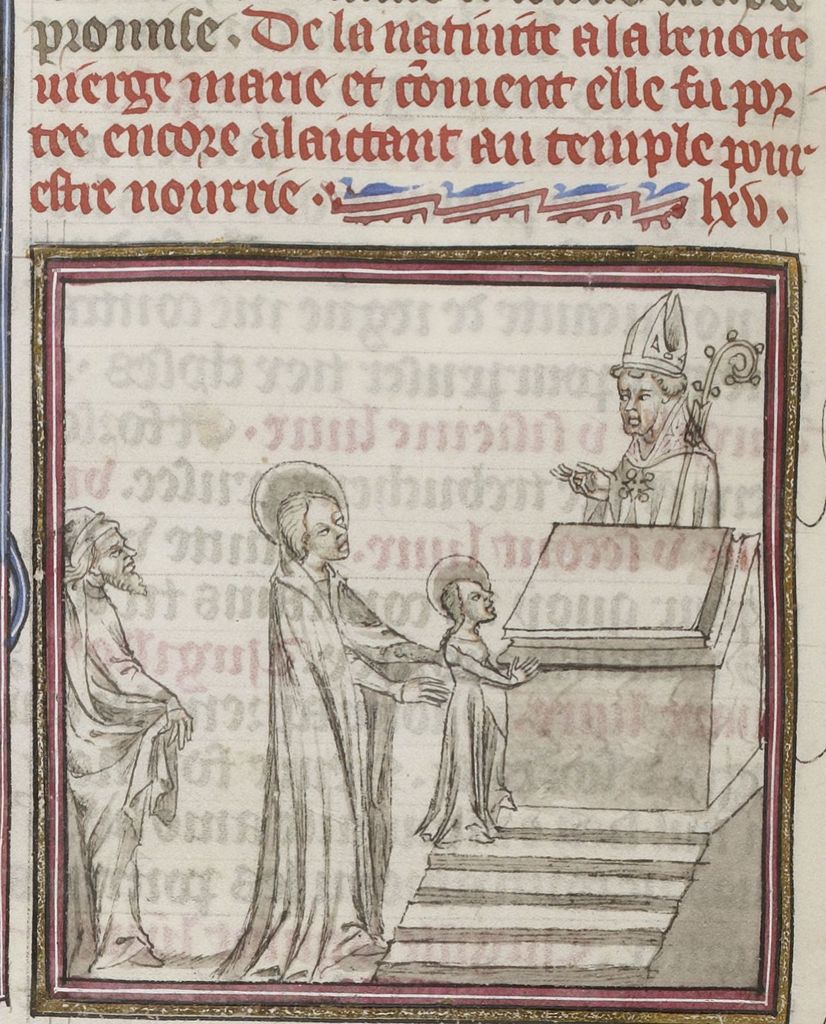 promise. De la natiuite a la benoite
uierge marie et cõment elle fu por
tee encore alaictant au temple pour
estre nourrie. lxv.